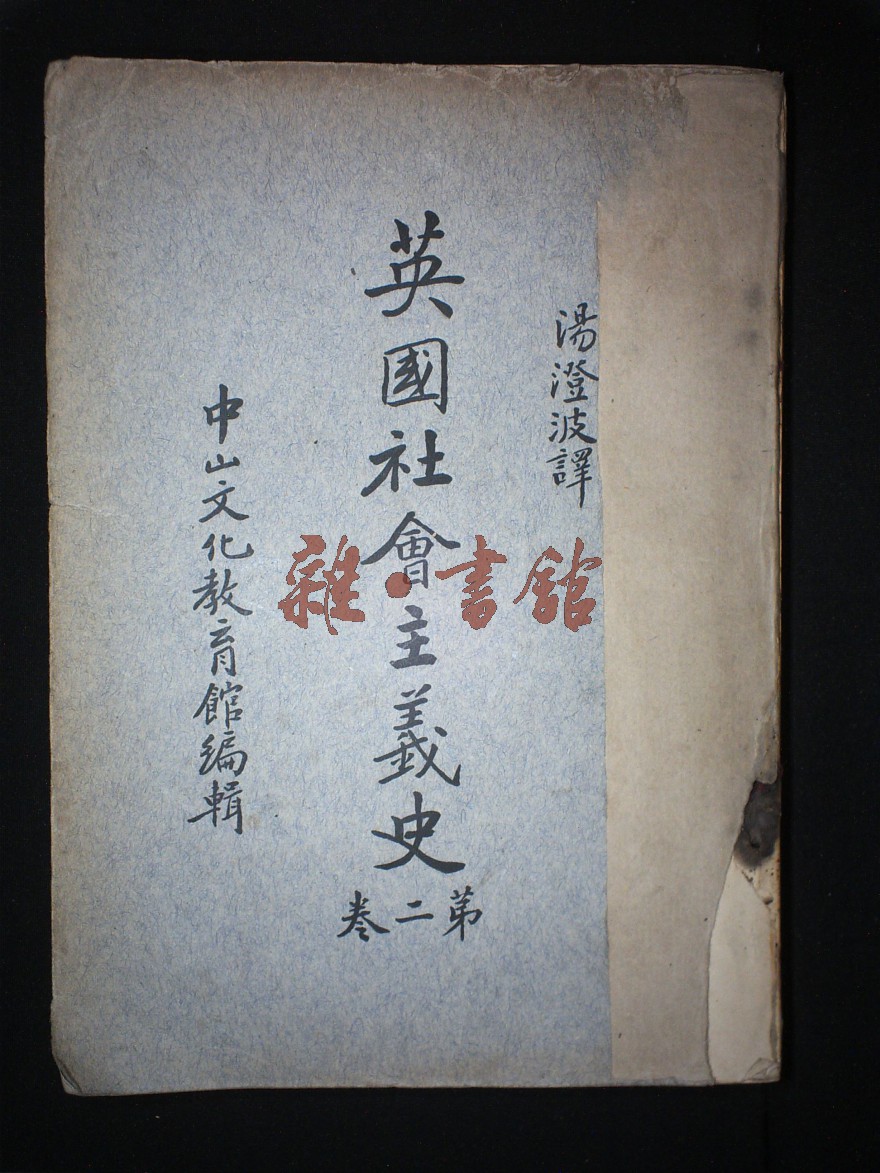 湯澄波譯
英國社會主義史
第二卷
中山文化教育館編輯
雜·書館